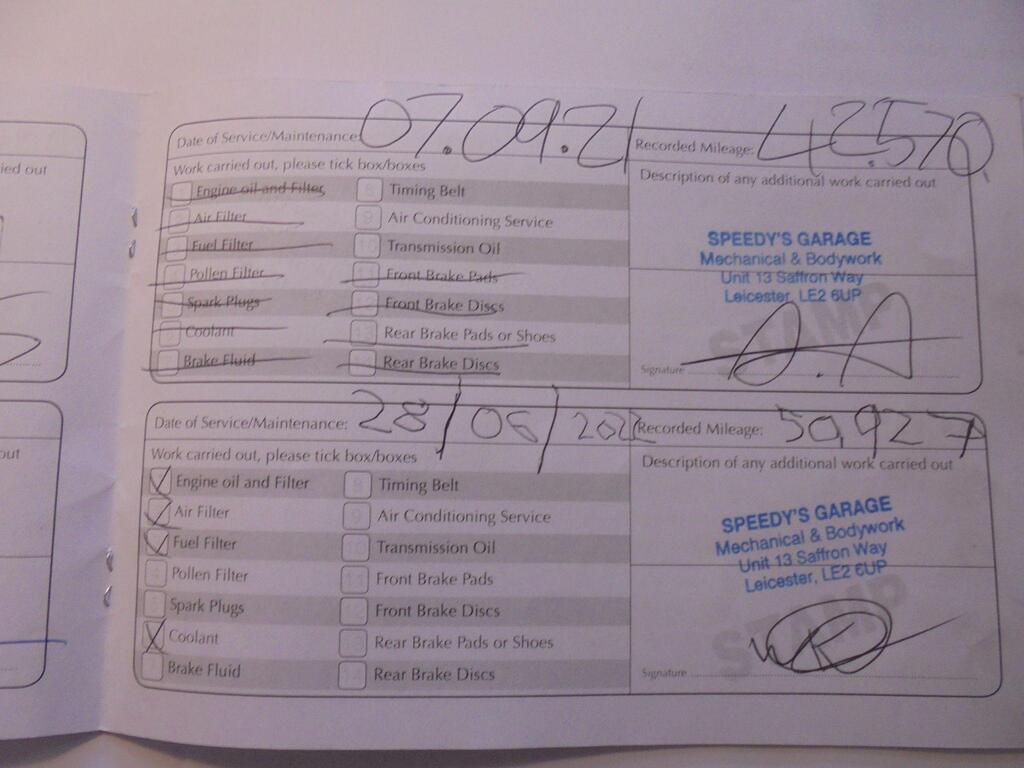 ied out
out
Date of Service/Maintenance: 07.09.21 Recorded Mileage: 42.570
Work carried out, please tick box/boxes
Description of any additional work carried out
1 Engine oil and Filter 8 Timing Belt
Air Filter 9 Air Conditioning Service
Fuel Filter 10 Transmission Oil
4 Pollen Filter 11 Front Brake Pads
Spark Plugs 12 Front Brake Discs
Coolant 13 Rear Brake Pads or Shoes
Brake Fluid 14 Rear Brake Discs
SPEEDY'S GARAGE
Mechanical & Bodywork
Unit 13 Saffron Way
Leicester, LE2 6UP
STAMP
Signature A.A
Date of Service/Maintenance: 28/06/2022 Recorded Mileage: 50,927
Work carried out, please tick box/boxes
Description of any additional work carried out
Engine oil and Filter 8 Timing Belt
Air Filter 9 Air Conditioning Service
Fuel Filter 10 Transmission Oil
4 Pollen Filter 11 Front Brake Pads
5 Spark Plugs 12 Front Brake Discs
Coolant 13 Rear Brake Pads or Shoes
Brake Fluid 14 Rear Brake Discs
SPEEDY'S GARAGE
Mechanical & Bodywork
Unit 13 Saffron Way
Leicester, LE2 6UP
STAMP
Signature